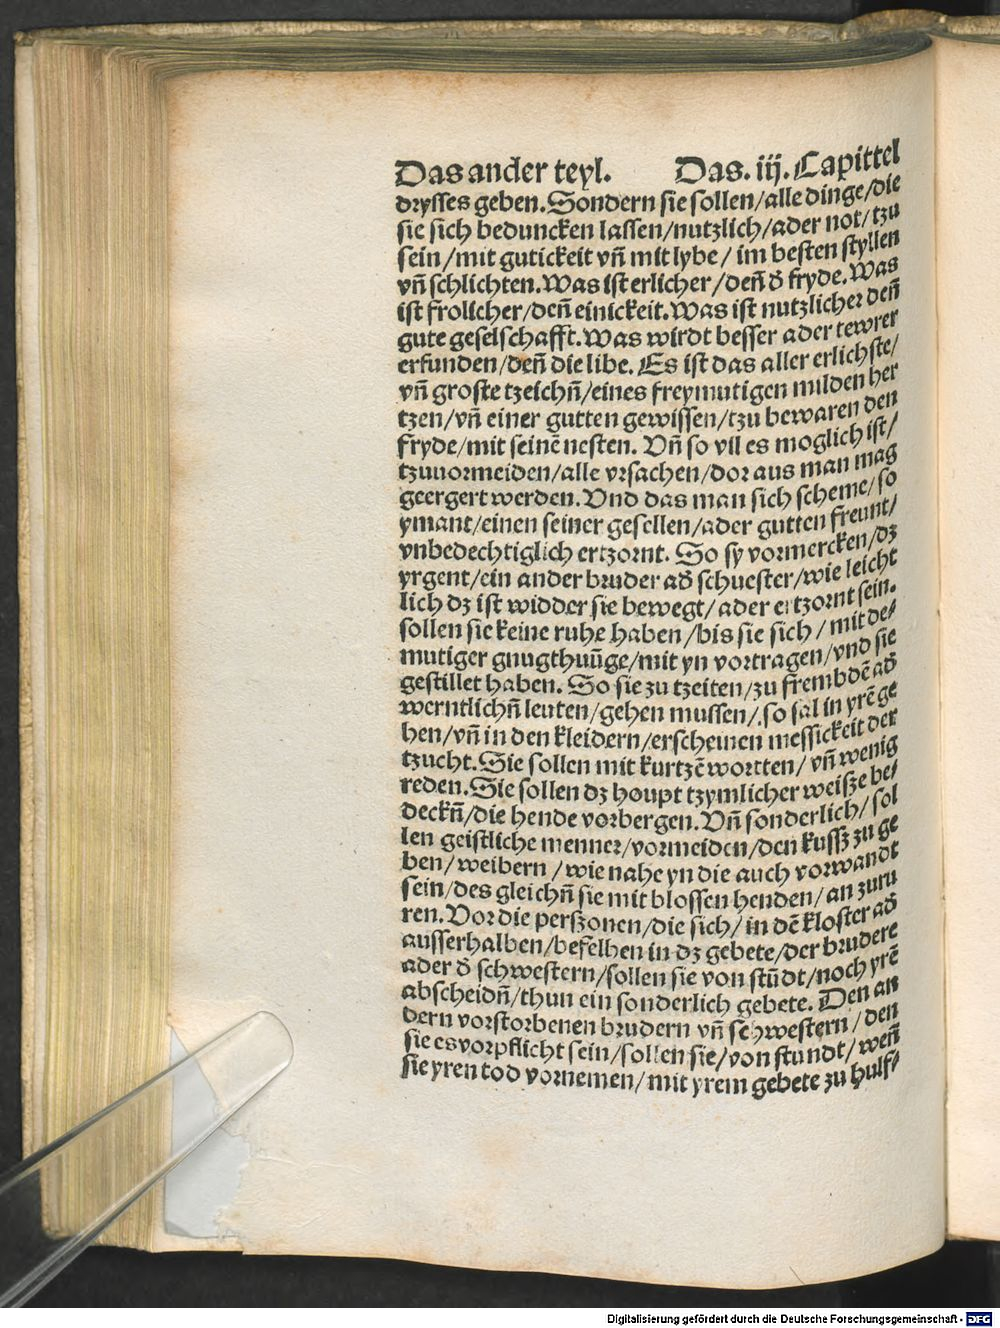 Das ander teyl. Das. iij. Capittel
drysses geben. Sondern sie sollen/alle dinge/die
sie sich beduncken lassen/nutzlich/ader not/tzu
sein/mit gutickeit vñ mit lybe/ im besten styllen
vñ schlichten. Was ist erlicher/deñ d̕ fryde. Was
ist frolicher/deñ einickeit. Was ist nutzlicher deñ
gute geselschafft. Was wirdt besser ader tewrer
erfunden/deñ die libe. Es ist das aller erlichste/
vñ groste tzeichñ/eines freymutigen milden her
tzen/vñ einer gutten gewissen/tzu bewaren den
fryde/mit seinē nesten. Vñ so vil es moglich ist/
tzuuormeiden/alle vrsachen/dor aus man mag
geergert werden. Vnd das man sich scheme/so
ymant/einen seiner gesellen/ader gutten freunt/
vnbedechtiglich ertzornt. So sy vormercken/dz
yrgent/ein ander bruder ad̕ schuester/wie leicht
lich dz ist widder sie bewegt/ ader ertzornt sein.
sollen sie keine ruhe haben/bis sie sich/ mit de/
mutiger gnugthuūge/mit yn vortragen/vnd sie
gestillet haben. So sie zu tzeiten/zu frembdē ad̕
werntlichñ leuten/gehen mussen/ so sal in yrē ge
hen/vñ in den kleidern/erscheinen messickeit der
tzucht. Sie sollen mit kurtzē wortten/ vñ wenig
reden. Sie sollen dz houpt tzymlicher weisze be/
deckñ/die hende vorbergen. Vñ sonderlich/ sol
len geistliche menner/vormeiden/den kussz zu ge
ben/ weibern /wie nahe yn die auch vorwandt
sein/des gleichñ sie mit blossen henden/ an zuru
ren. Vor die perszonen/die sich/ in dē kloster ad̕
ausserhalben/befelhen in dz gebete/der brudere
ader d̕ schwestern/sollen sie von stūdt/noch yrē
abscheidñ/thun ein sonderlich gebete. Den an
dern vorstorbenen brudern vñ schwestern/ den
sie es vorpflicht sein/sollen sie/von stundt/ weñ
sie yren tod vornemen/mit yrem gebete zu hulf/
Digitalisierung gefördert durch die Deutsche Forschungsgemeinschaft - DFG